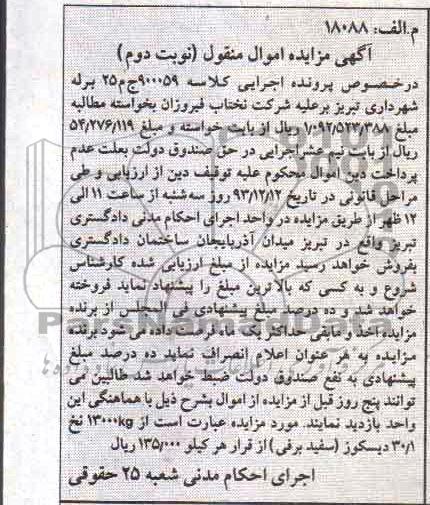 م.الف: ۱۸۰۸۸
آگهی مزایده اموال منقول (نوبت دوم)
درخصوص پرونده اجرایی کلاسه ۹۰۰۰۵۹ج‌م۲۵ برله
شهرداری تبریز برعلیه شرکت نختاب فیروزان بخواسته مطالبه
مبلغ ۷/۰۹۲/۵۲۳/۳۸۸ ریال از بابت خواسته و مبلغ ۵۴/۲۷۶/۱۱۹
ریال از بابت نیم عشر اجرایی در حق صندوق دولت بعلت عدم
پرداخت دین اموال محکوم علیه توقیف دین از ارزیابی و طی
مراحل قانونی در تاریخ ۹۳/۱۲/۱۲ روز سه‌شنبه از ساعت ۱۱ الی
۱۲ ظهر از طریق مزایده در واحد اجرای احکام مدنی دادگستری
تبریز واقع در تبریز میدان آذربایجان ساختمان دادگستری
بفروش خواهد رسید مزایده از مبلغ ارزیابی شده کارشناس
شروع و به کسی که بالاترین مبلغ را پیشنهاد نماید فروخته
خواهد شد و ده درصد مبلغ پیشنهادی فی المجلس از برنده
مزایده اخذ و مابقی حداکثر یک ماه فرصت داده می شود برنده
مزایده به هر عنوان اعلام انصراف نماید ده درصد مبلغ
پیشنهادی به نفع صندوق دولت ضبط خواهد شد طالبین می
توانند پنج روز قبل از مزایده از اموال بشرح ذیل با هماهنگی این
واحد بازدید نمایند. مورد مزایده عبارت است از ۱۳۰۰۰kg نخ
۳۰/۱ دیسکوز (سفید برفی) از قرار هر کیلو ۱۳۵/۰۰۰ ریال
اجرای احکام مدنی شعبه ۲۵ حقوقی